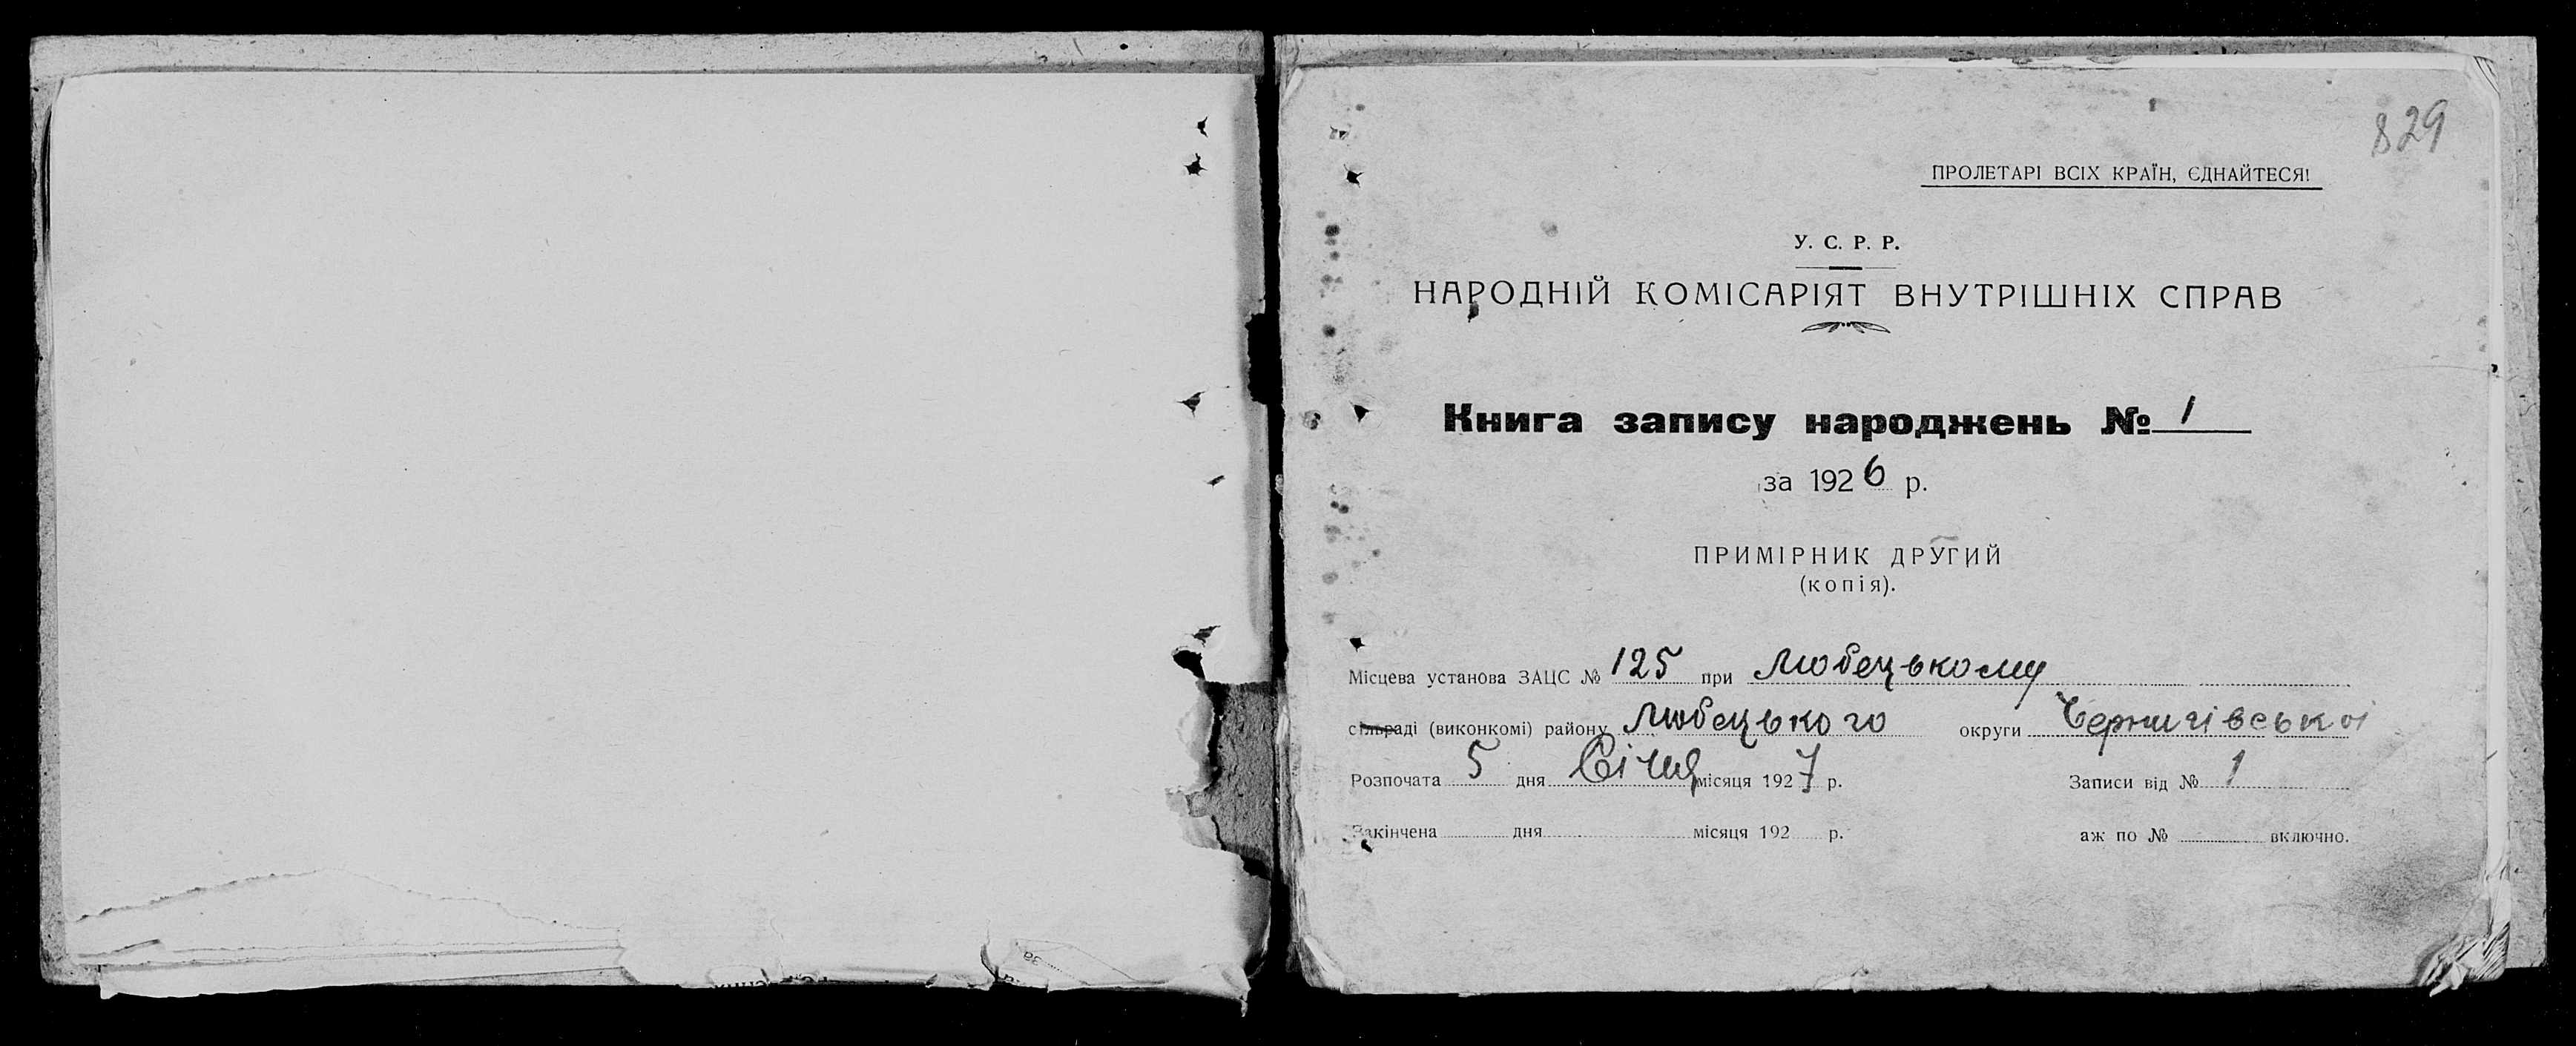 829
ПРОЛЕТАРІ ВСІХ КРАЇН, ЄДНАЙТЕСЯ!
У. С. Р. Р.
НАРОДНІЙ КОМІСАРІЯТ ВНУТРІШНІХ СПРАВ
Книга запису народжень № 1
за 1926 р.
ПРИМІРНИК ДРУГИЙ
(копія).
Місцева установа ЗАЦС № 125 при Любецькому
сільраді (виконкомі) району Любецького округи Чернигівськоі
Розпочата 5 дня Січня місяця 1927 р. Записи від № 1
Закінчена дня місяця 192 р. аж по № включно.